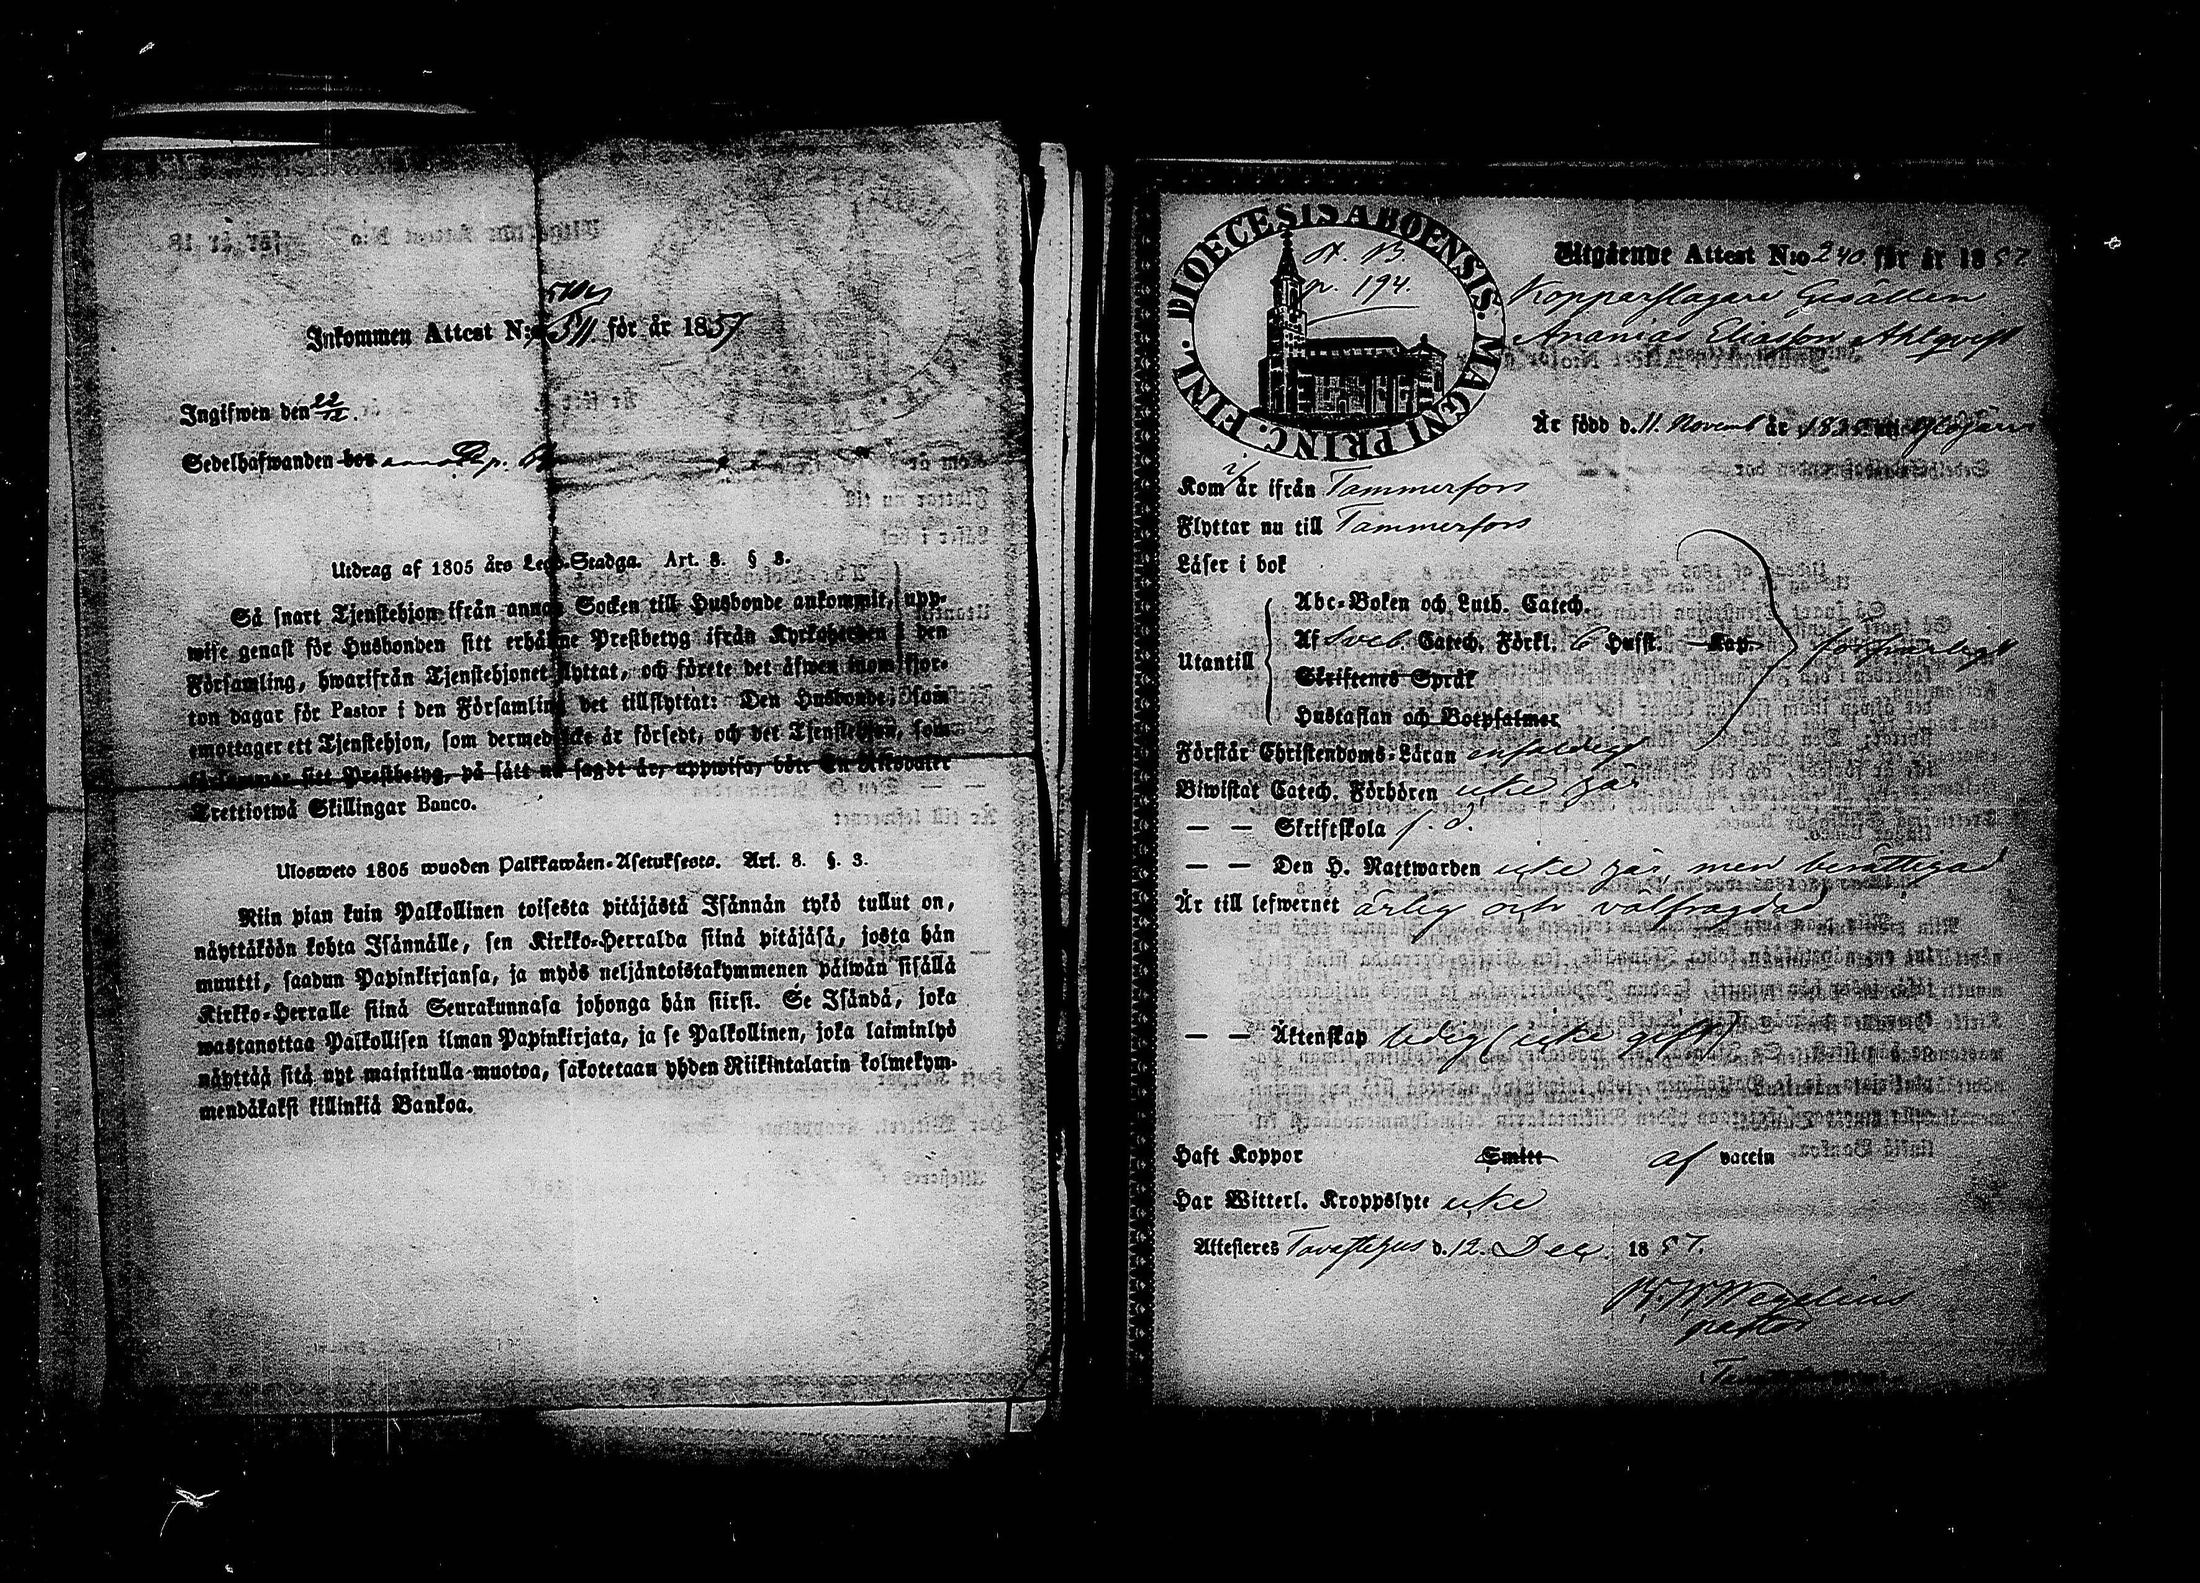 Inkommen Attest N:o 511 för år 1857
Ingifwen den 22/12.
Sedelhafwanden bor
Utdrag af 1805 års Lego-Stadga. Art. 8. § 3.
Så snart Tjenstehjon ifrån annan Socken till Husbonde ankommit, upp-
wise genast för Husbonden sitt erhållne Prestbetyg ifrån Kyrkoherden i den
Församling, hwarifrån Tjenstehjonet flyttat, och förete det äfwen inom fjor-
ton dagar för Pastor i den Församling det tillflyttat: Den Husbonde, som
emottager ett Tjenstehjon, som dermed icke är försedt, och det Tjenstehjon, som
försummar sitt Prestbetyg, på sätt nu sagdt är, uppwisa, böte En Riksdaler
Trettiotwå Skillingar Banco.
Ulosweto 1805 wuoden Palkkawäen-Asetuksesta. Art. 8. §. 3.
Niin pian kuin Palkollinen toisesta pitäjästä Isännän tykö tullut on,
näyttäköön kohta Isännälle, sen Kirkko-Herralda siinä pitäjäsä, josta hän
muutti, saadun Papinkirjansa, ja myös neljäntoistakymmenen päiwän sisällä
Kirkko-Herralle siinä Seurakunnasa johonga hän siirsi. Se Isändä, joka
wastanottaa Palkollisen ilman Papinkirjata, ja se Palkollinen, joka laiminlyö
näyttää sitä nyt mainitulla muotoa, sakotetaan yhden Riikintalarin kolmekym-
mendäkaksi killinkiä Bankoa.
DIOECESIS ABOENSIS. MAGNI PRINC. FINL.
p. 194.
Utgående Attest N:o 240 för år 1857
Kopparslagare Gesällen
Ananias Eliasson Ahlqvist
Är född d. 11 Novemb år
Kom i år ifrån Tammerfors
Flyttar nu till Tammerfors
Läser i bok
Abc-Boken och Luth. Catech.
Utantill Af Sveb. Catech. Förkl. 6 Hufst. Kap. försvarligt
Skriftenes Språk
Hustaflan och Botpsalmer
Förstår Christendoms-Läran enfaldigt
Biwistat Catech. Förhören icke här
— — Skriftskola s. d.
— — Den H. Nattwarden icke här, men berättigad
Är till lefwernet ärlig och välfrägdad
— — Äktenskap ledig (icke gift)
Haft Koppor Smitt af vaccin
Har Witterl. Kroppslyte icke
Attesteres Tavastehus d. 12. Dec. 1857.
Wegelius
pastor